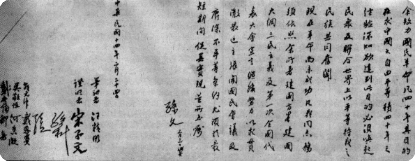 余致力國民革命凡四十年其目的
在求中國之自由平等積四十年之
經驗深知欲達到此目的必須喚起
民衆及聯合世界上以平等待我之
民族共同奮鬥
現在革命尚未成功凡我同志務
須依照余所著建國方畧建國
大綱三民主義及第一次全國代
表大會宣言繼續努力以求貫
徹最近主張開國民會議及
廢除不平等條約尤須於最
短期間促其實現是所至囑
孫文
中華民國十四年二月二十四日
筆記者 汪精衛
證明者 宋子文
孫科